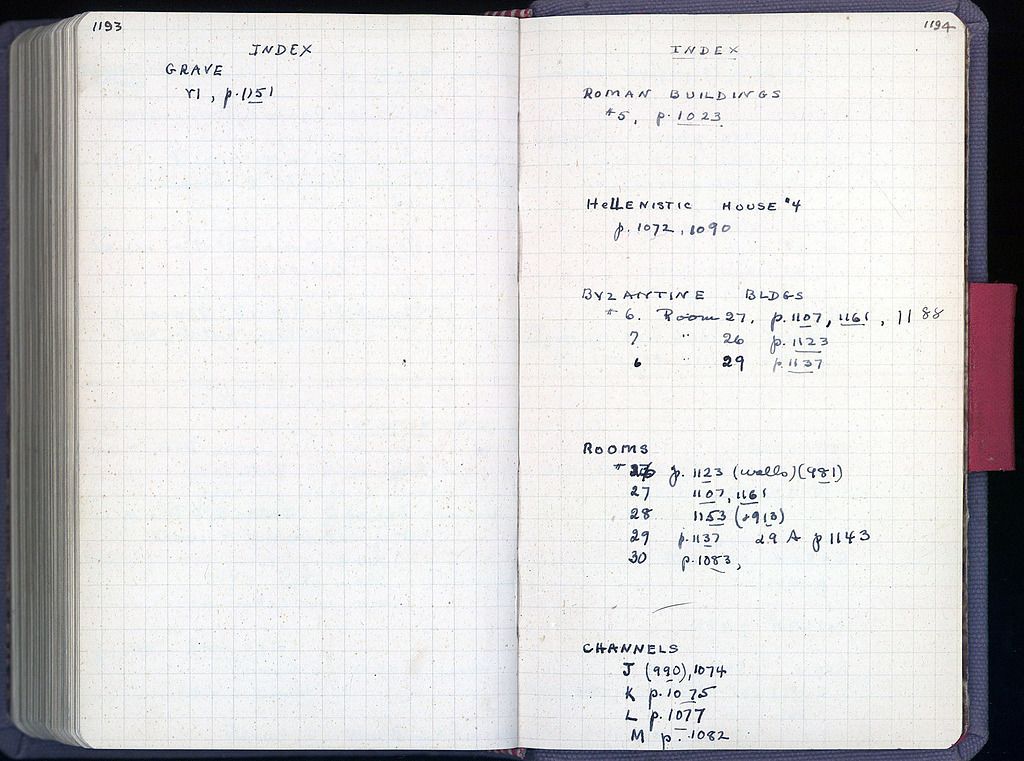 1193
INDEX
GRAVE
VI, p. 1151
1194
INDEX
ROMAN BUILDINGS
#5, p. 1023
HELLENISTIC HOUSE #4
p. 1072, 1090
BYZANTINE BLDGS
# 6. Room 27, p. 1107, 1161, 1188
7 " 26 p. 1123
6 " 29 p. 1137
ROOMS
# 26 p. 1123 (walls) (981)
27 1107, 1161
28 1153 (+913)
29 p. 1137 29 A p 1143
30 p. 1083,
CHANNELS
J (990), 1074
K p. 1075
L p. 1077
M p. 1082